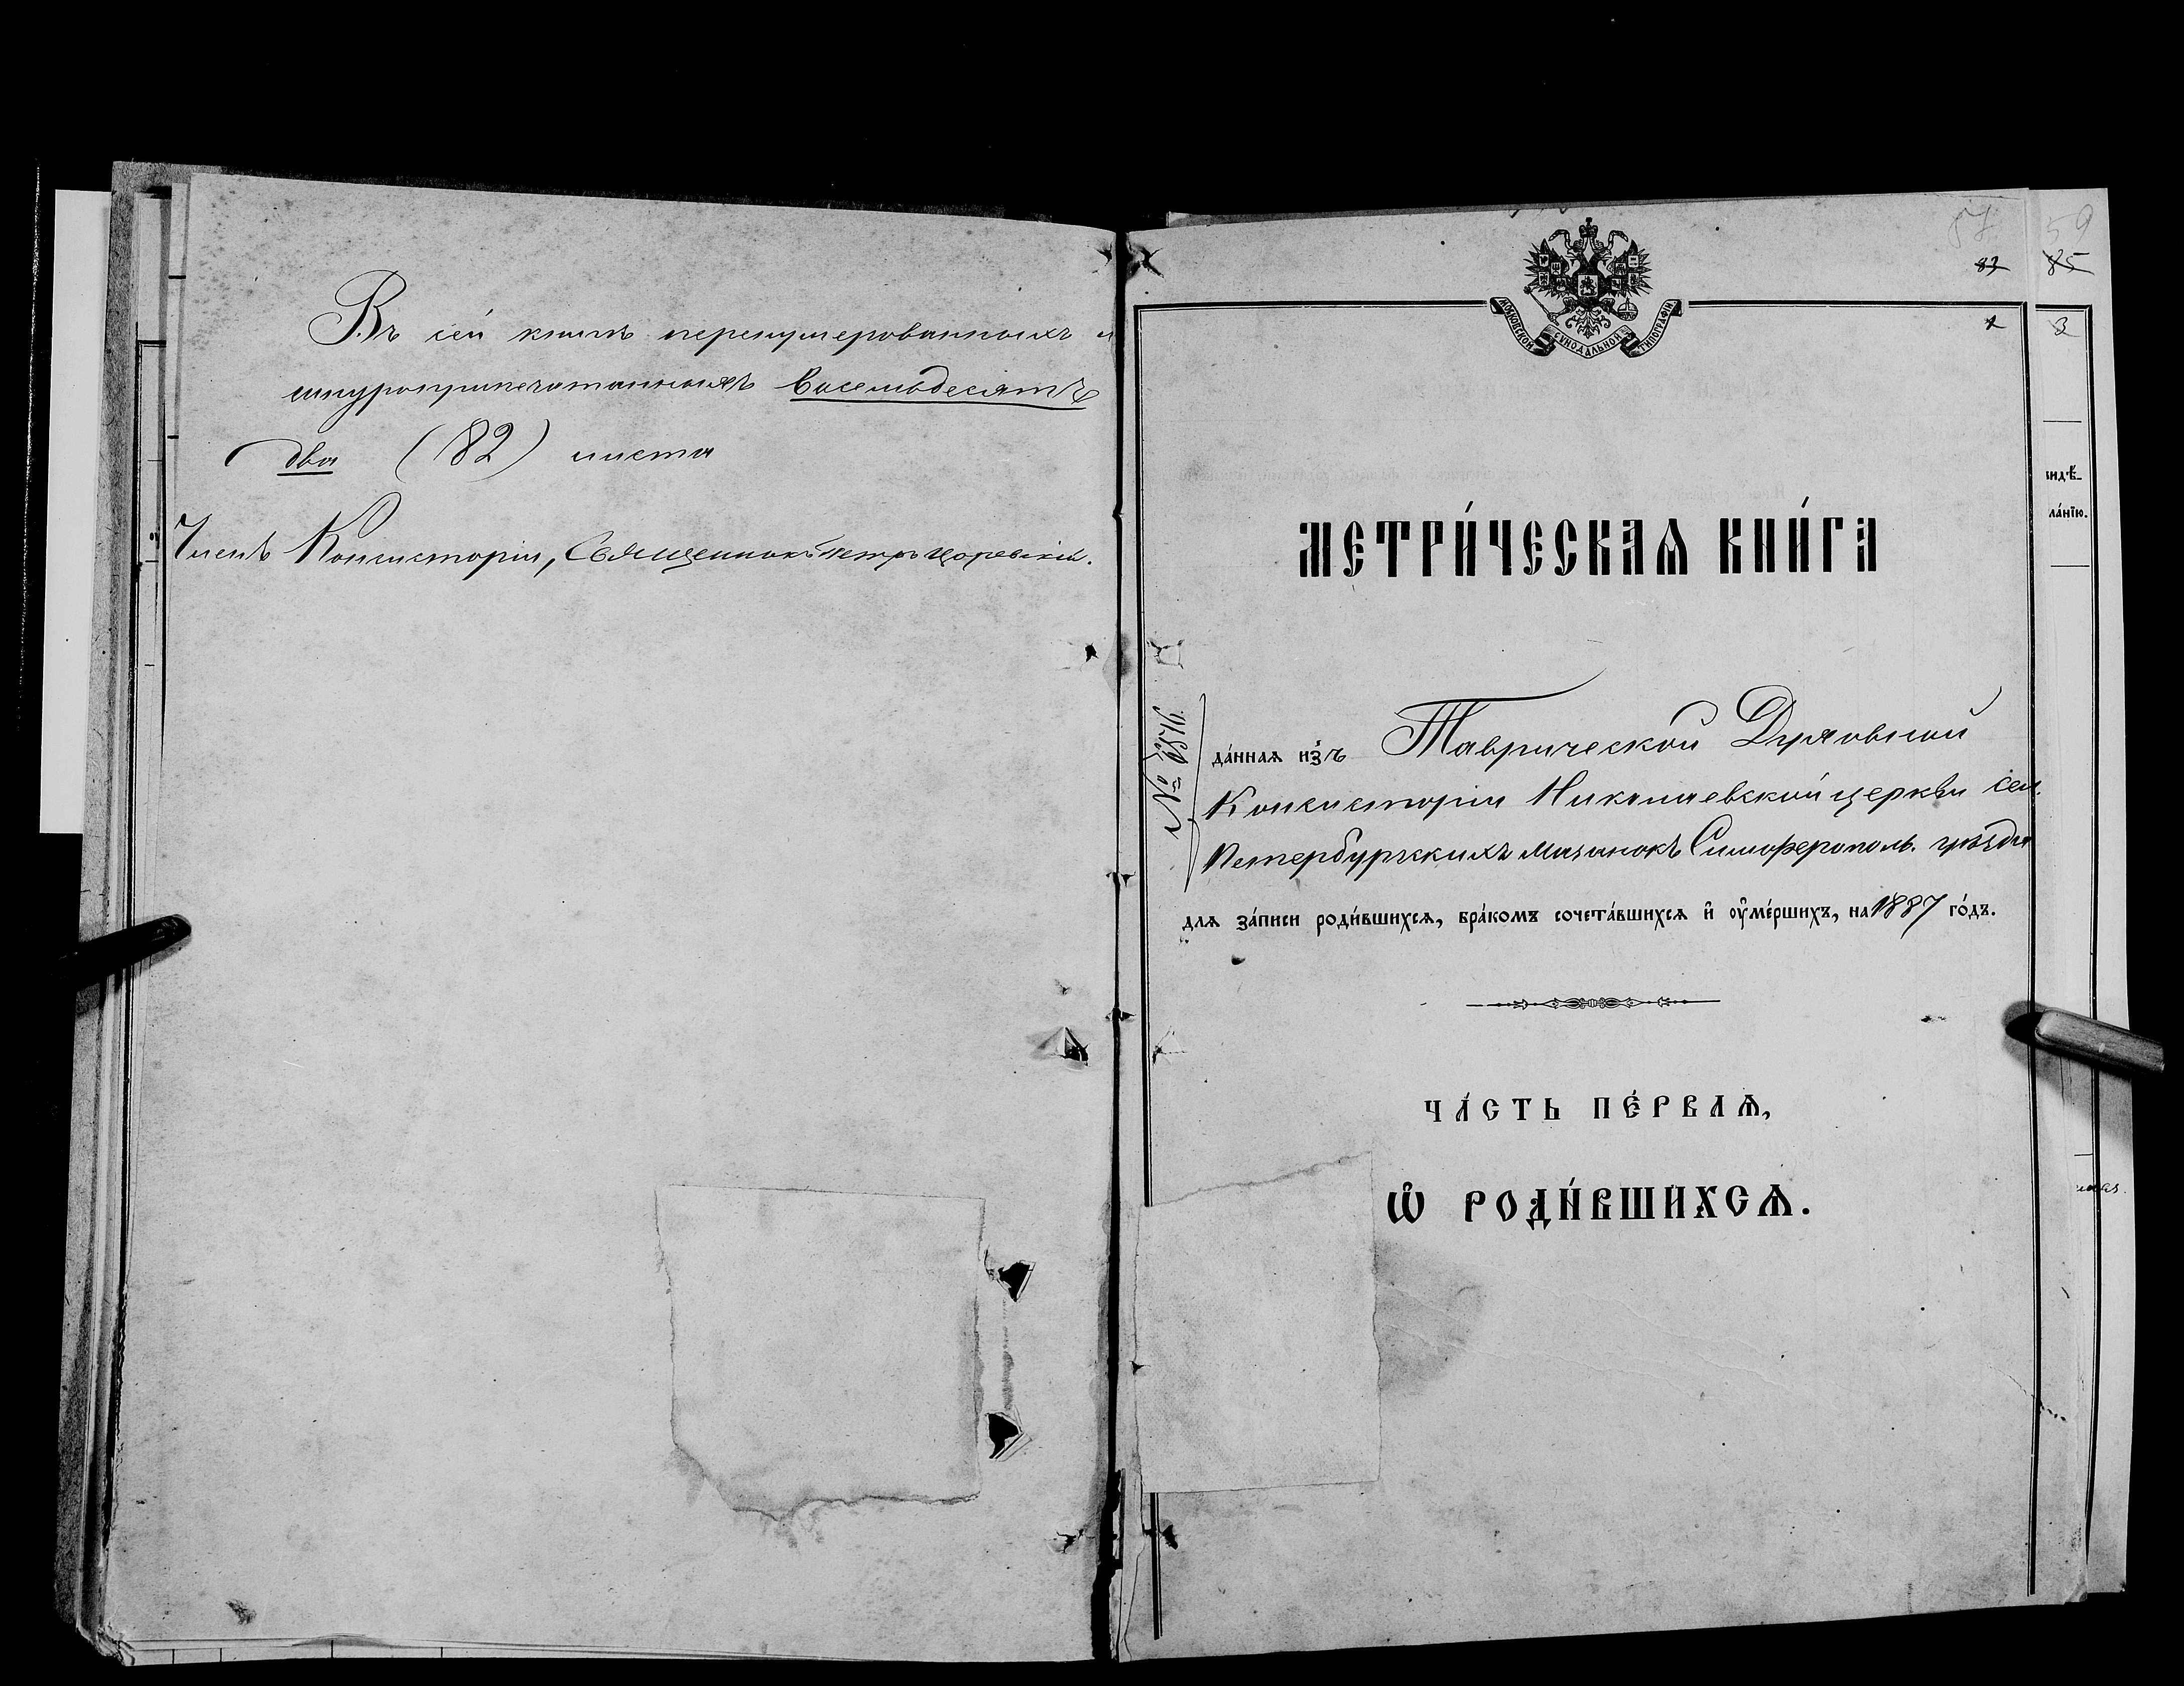 Въ сей книгѣ перенумерованныхъ и
шнуроприпечатанныхъ восемьдесятъ
два (82) листа
Членъ Консисторіи, Священникъ Петръ
57
83
1
59
85
3
МОСКОВСКОЙ СѴНОДАЛЬНОЙ ТИПОГРАФІИ
МЕТРИ́ЧЕСКАѦ КНИ́ГА
да́ннаѧ и҆з̾ Таврической Духовной
Консисторіи Николаевской церкви сел.
Петербургскихъ Мазанокъ Симферополь. уѣзда
для за́писи роди́вшихсѧ, бра́комъ сочета́вшихсѧ и҆ ᲂу҆ме́ршихъ, на 1887 го́дъ.
ЧА́СТЬ ПЕ́РВАѦ,
Ѡ҆ РОДИ́ВШИХСѦ.
видѣ-
ла́нїю.